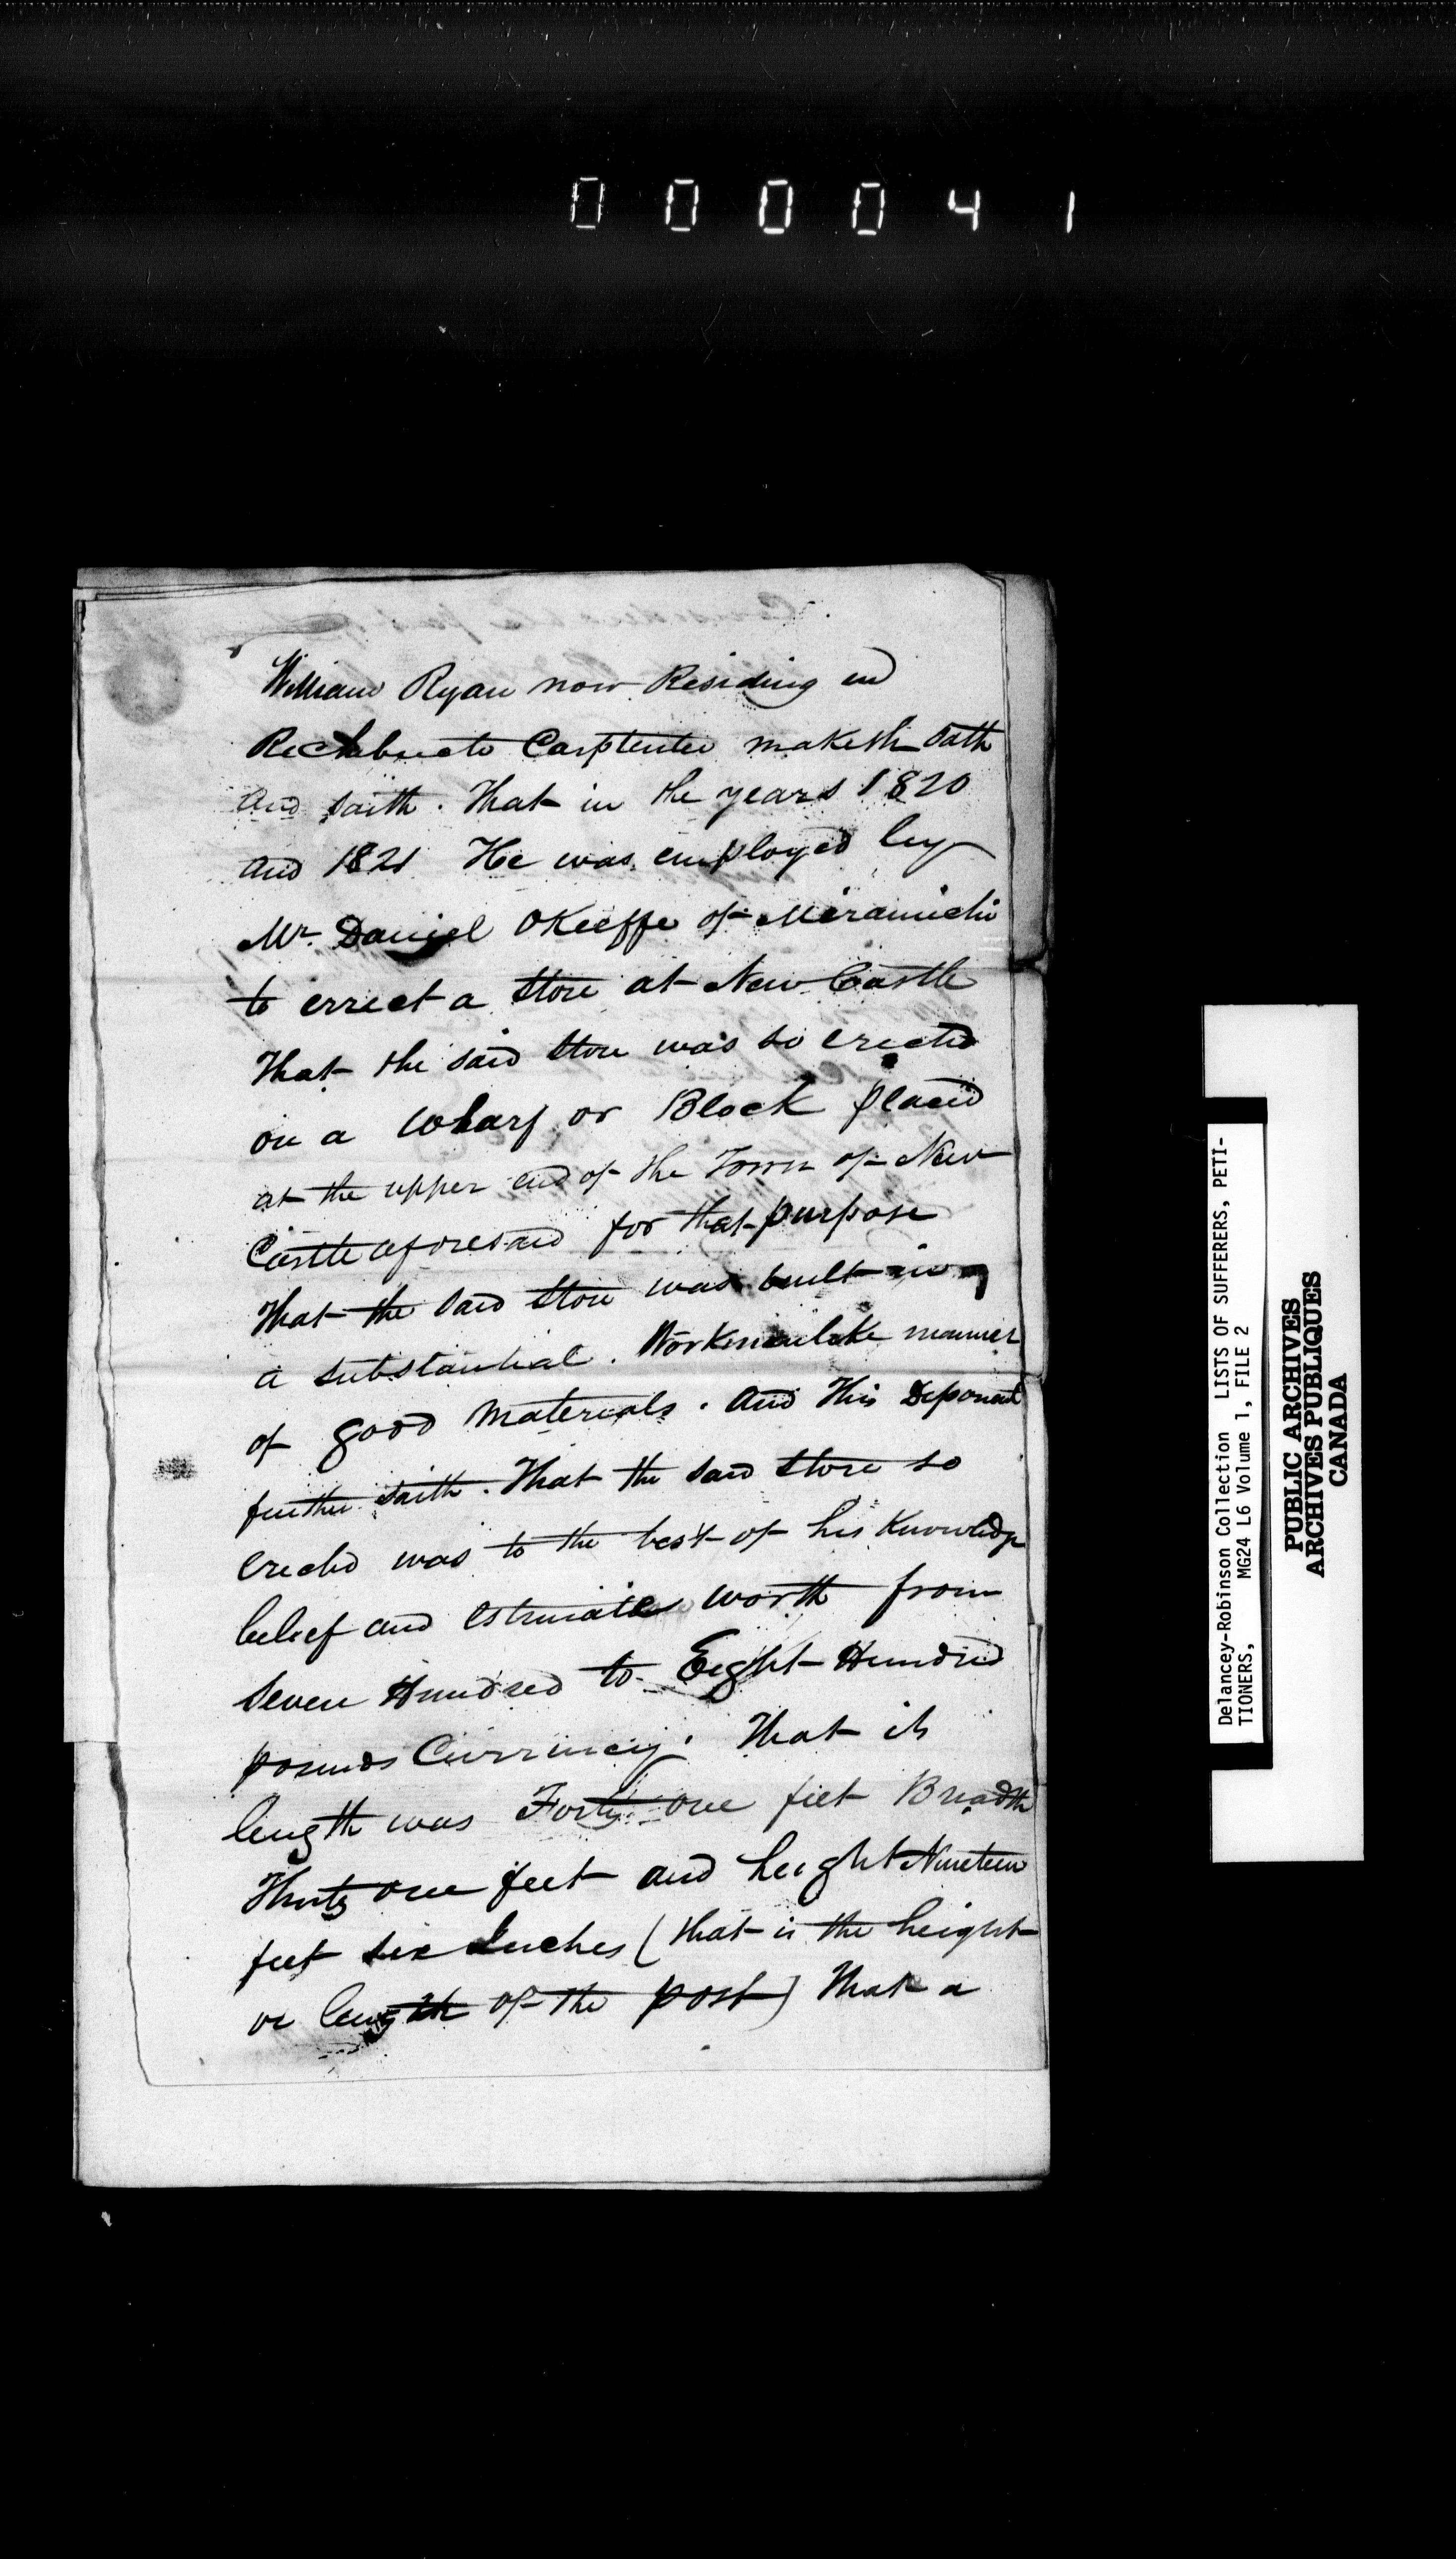 000041
William Ryan now Residing in
Rechebucto Carptenter maketh Oath
and saith. That in the years 1820
and 1821 He was employed by
Mr. Daniel OKeeffe of Miramichi
to errect a Store at New Castle
That the said Store was so erected
on a Wharf or Block placed
at the upper end of the Town of New
Castle aforesaid for that purpose
That the said Store was built in
a substantial. Workmanlike manner
of good Materials. And This Deponent
further saith. That the said Store so
erected was to the best of his Knowledge
belief and estimate worth from
Seven Hundred to Eight Hundred
pounds Currency. That its
length was Forty one feet Breadth
Thirty one feet and height Nineteen
feet six Inches (that is the height
or length of the post) That a
Delancey-Robinson Collection LISTS OF SUFFERERS, PETI-
TIONERS, MG24 L6 Volume 1, FILE 2
PUBLIC ARCHIVES
ARCHIVES PUBLIQUES
CANADA